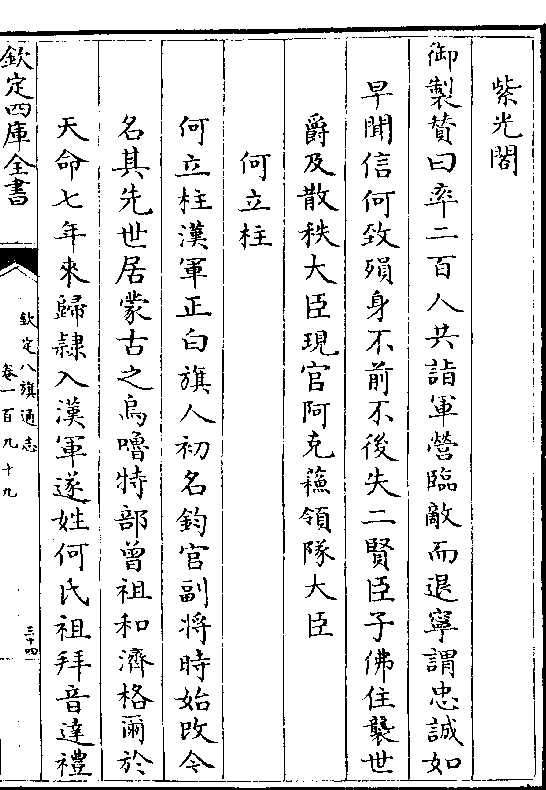 紫光閣
御製贊曰率二百人共詣軍營臨敵而退寧謂忠誠如
早聞信何致殞身不前不後失二賢臣子佛住襲世
爵及散秩大臣現官阿克蘓領隊大臣
何立柱
何立柱漢軍正白旗人初名鈞官副將時始改今
名其先世居蒙古之烏嚕特部曾祖和濟格爾於
天命七年來歸隷入漢軍遂姓何氏祖拜音達禮
欽定四庫全書
欽定八旗通志
卷一百九十九
三十四